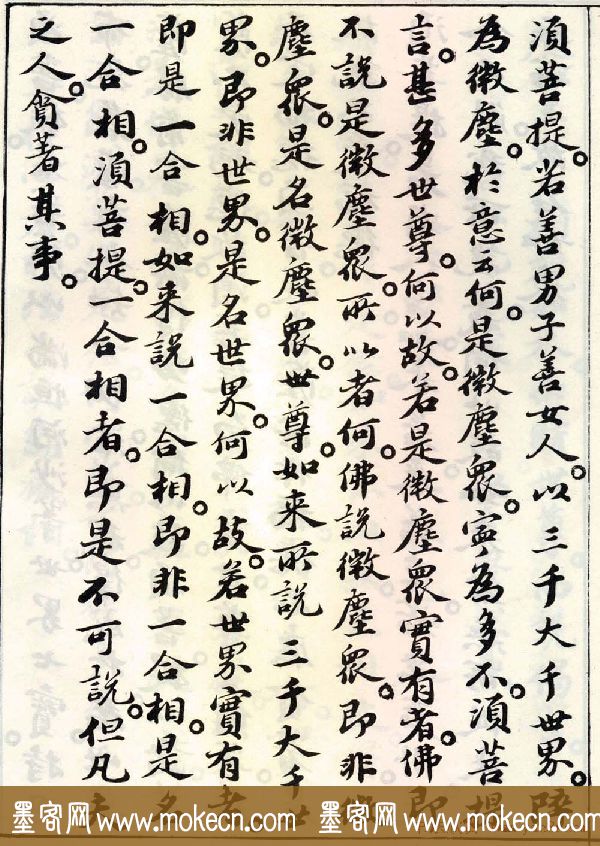 須菩提。若善男子善女人。以三千大千世界。碎
為微塵。於意云何。是微塵眾。寧為多不。須菩提
言。甚多世尊。何以故。若是微塵眾實有者。佛即
不說是微塵眾。所以者何。佛說微塵眾。即非
塵眾。是名微塵眾。世尊。如来所說三千大千世
界。即非世界。是名世界。何以故。若世界實有者
即是一合相。如来說一合相。即非一合相。是名
一合相。須菩提。一合相者。即是不可說。但凡
之人。貪著其事。
墨客网 www.mokecn.com 墨客网 www.mokecn.com